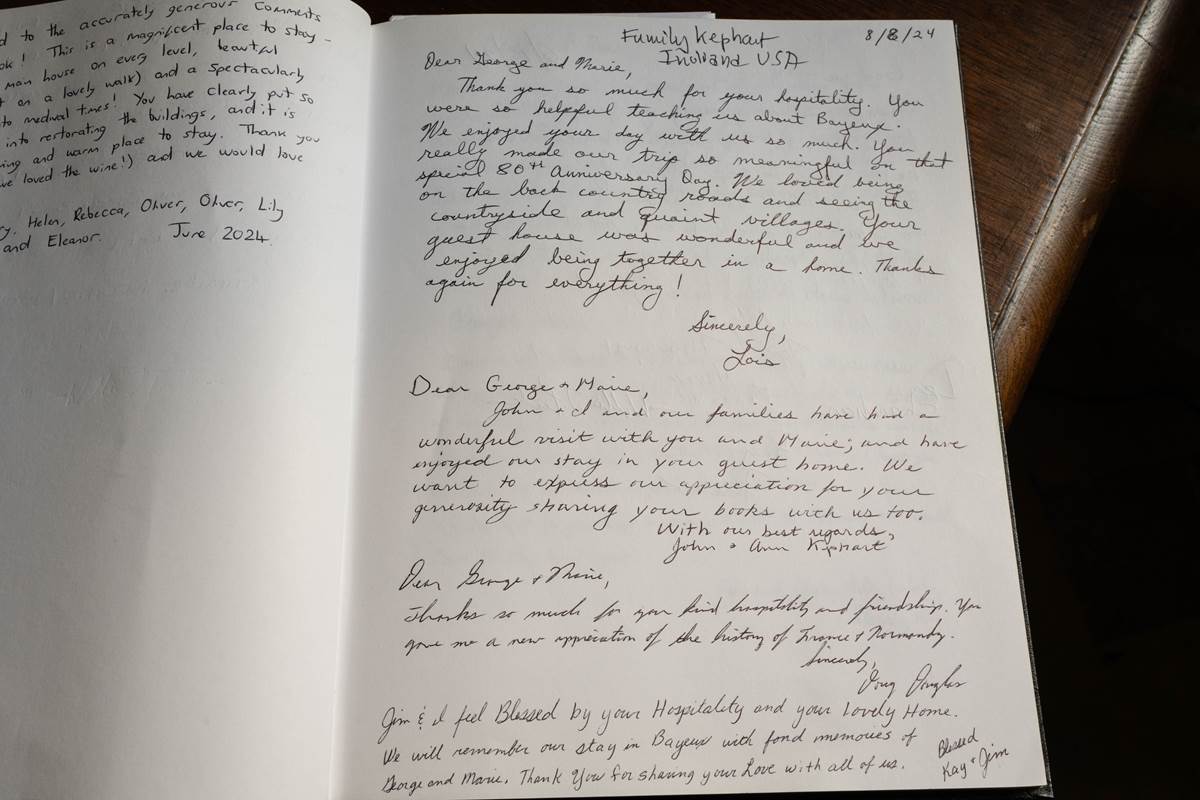 d to the accurately generous comments
ok! This is a magnificent place to stay -
main house on every level, beautiful
on a lovely walk) and a spectacularly
to medival times! You have clearly put so
into restorating the buildings, and it is
ing and warm place to stay. Thank you
we loved the wine!) and we would love
y, Helen, Rebecca, Oliver, Oliver, Lily
and Eleanor. June 2024
Family Kephart 8/8/24
USA
Dear George and Marie,
Thank you so much for your hospitality. You
were so helpful teaching us about Bayeux.
We enjoyed your day with us so much. You
really made our trip so meaningful on that
special 80th Anniversary Day. We loved being
on the back country roads and seeing the
countryside and quaint villages. Your
guest house was wonderful and we
enjoyed being together in a home. Thanks
again for everything!
Sincerely,
Lois
Dear George + Marie,
John + I and our families have had a
wonderful visit with you and Marie; and have
enjoyed our stay in your guest home. We
want to express our appreciation for your
generosity sharing your books with us too.
With our best regards,
John + Ann Kephart
Dear George + Marie,
Thanks so much for your kind hospitality and friendship. You
gave me a new appreciation of the history of France + Normandy.
Sincerely,
Doug Douglas
Jim & I feel Blessed by your Hospitality and your Lovely Home.
We will remember our stay in Bayeux with fond memories of
George and Marie. Thank You for sharing your Love with all of us.
Blessed
Kay + Jim